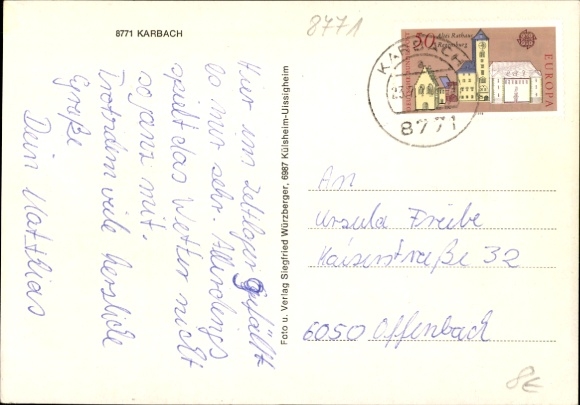 8771 KARBACH
Hier im Zeltlager gefällt
es mir sehr. Allerdings
spielt das Wetter nicht
so ganz mit.
Trotzdem viele herzliche
Grüße
Dein Matthias
Foto u. Verlag Siegfried Würzberger, 6987 Külsheim-Uissigheim
8771
50
Altes Rathaus
Regensburg
EUROPA
KARBACH
23.
8771
An
Ursula Freibe
Kaiserstraße 32
6050 Offenbach
8€